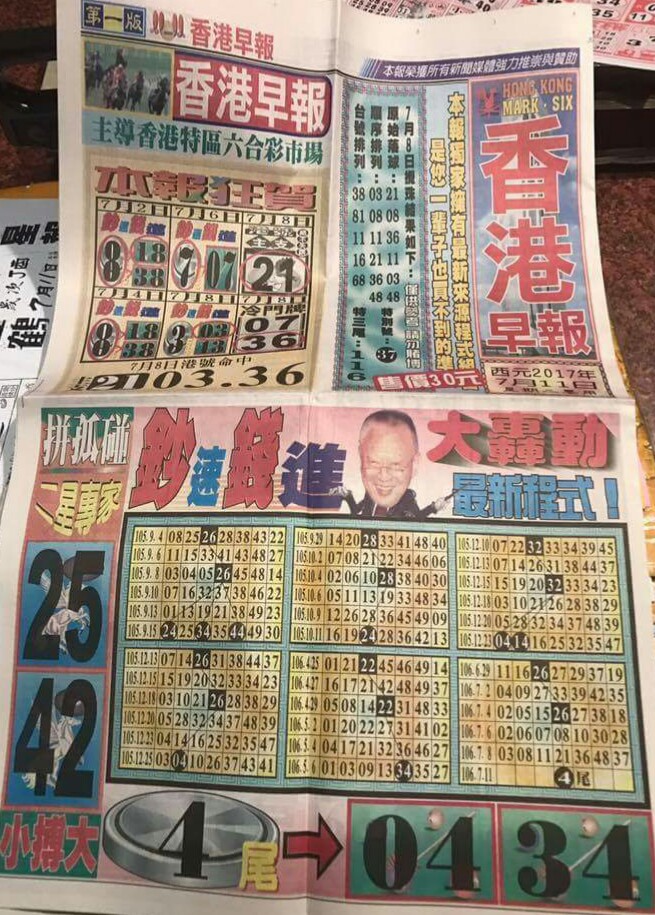 第一版
香港早報
香港早報
主導香港特區六合彩市場
本報狂賀
7月2日 7月6日 7月8日
鈔速錢進 鈔速錢進
8 18 38
7 07
21
7月4日 7月8日 7月8日
鈔速錢進 鈔速錢進 冷門牌
8 18 38
3 03 43
07
36
7月8日港號命中
21.03.36
本報榮獲所有新聞媒體強力推崇與贊助
HONG KONG
MARK·SIX
香港早報
西元2017年
7月11日
本報獨家擁有最新來源程式組
是您一輩子也買不到的準
7月8日攪珠結果如下：僅供參考 請勿賭博
原始落球：21 08 11 36 03 48 特別號：37
順序排列：03 08 11 21 36 48
台號排列：38 81 11 16 68 特三尾：116
售價30元
拼孤碰
二星專家
25
42
鈔速錢進
大轟動
最新程式！
105.9.4 08 25 26 28 38 43 22
105.9.6 11 15 33 41 43 48 27
105.9.8 03 04 05 26 45 48 14
105.9.10 07 16 32 37 38 46 22
105.9.13 01 13 19 21 38 49 23
105.9.15 24 25 34 35 44 49 30
105.9.29 14 20 28 33 41 48 40
105.10.2 07 08 21 22 34 46 06
105.10.4 02 06 10 28 38 40 30
105.10.6 05 11 13 19 33 48 34
105.10.9 12 26 28 36 45 49 09
105.10.11 16 19 24 28 36 42 13
105.12.10 07 22 32 33 34 39 45
105.12.13 07 14 26 31 38 44 37
105.12.15 15 19 20 32 33 34 23
105.12.18 03 10 21 26 28 38 29
105.12.20 05 28 32 34 37 48 39
105.12.23 04 14 16 25 32 35 47
105.12.13 07 14 26 31 38 44 37
105.12.15 15 19 20 32 33 34 23
105.12.18 03 10 21 26 28 38 29
105.12.20 05 28 32 34 37 48 39
105.12.23 04 14 16 25 32 35 47
105.12.25 03 04 10 26 37 43 41
106.4.25 01 21 22 45 46 49 14
106.4.27 16 17 21 42 48 49 37
106.4.29 05 08 14 22 31 48 33
106.5.2 01 20 22 27 31 41 02
106.5.4 04 17 21 32 36 46 27
106.5.6 01 03 09 13 34 35 27
106.6.29 11 16 26 27 29 37 19
106.7.2 04 09 27 33 39 42 35
106.7.4 02 05 15 26 27 38 18
106.7.6 02 06 07 08 10 30 28
106.7.8 03 08 11 21 36 48 37
106.7.11 4尾
小搏大
4尾
04 34